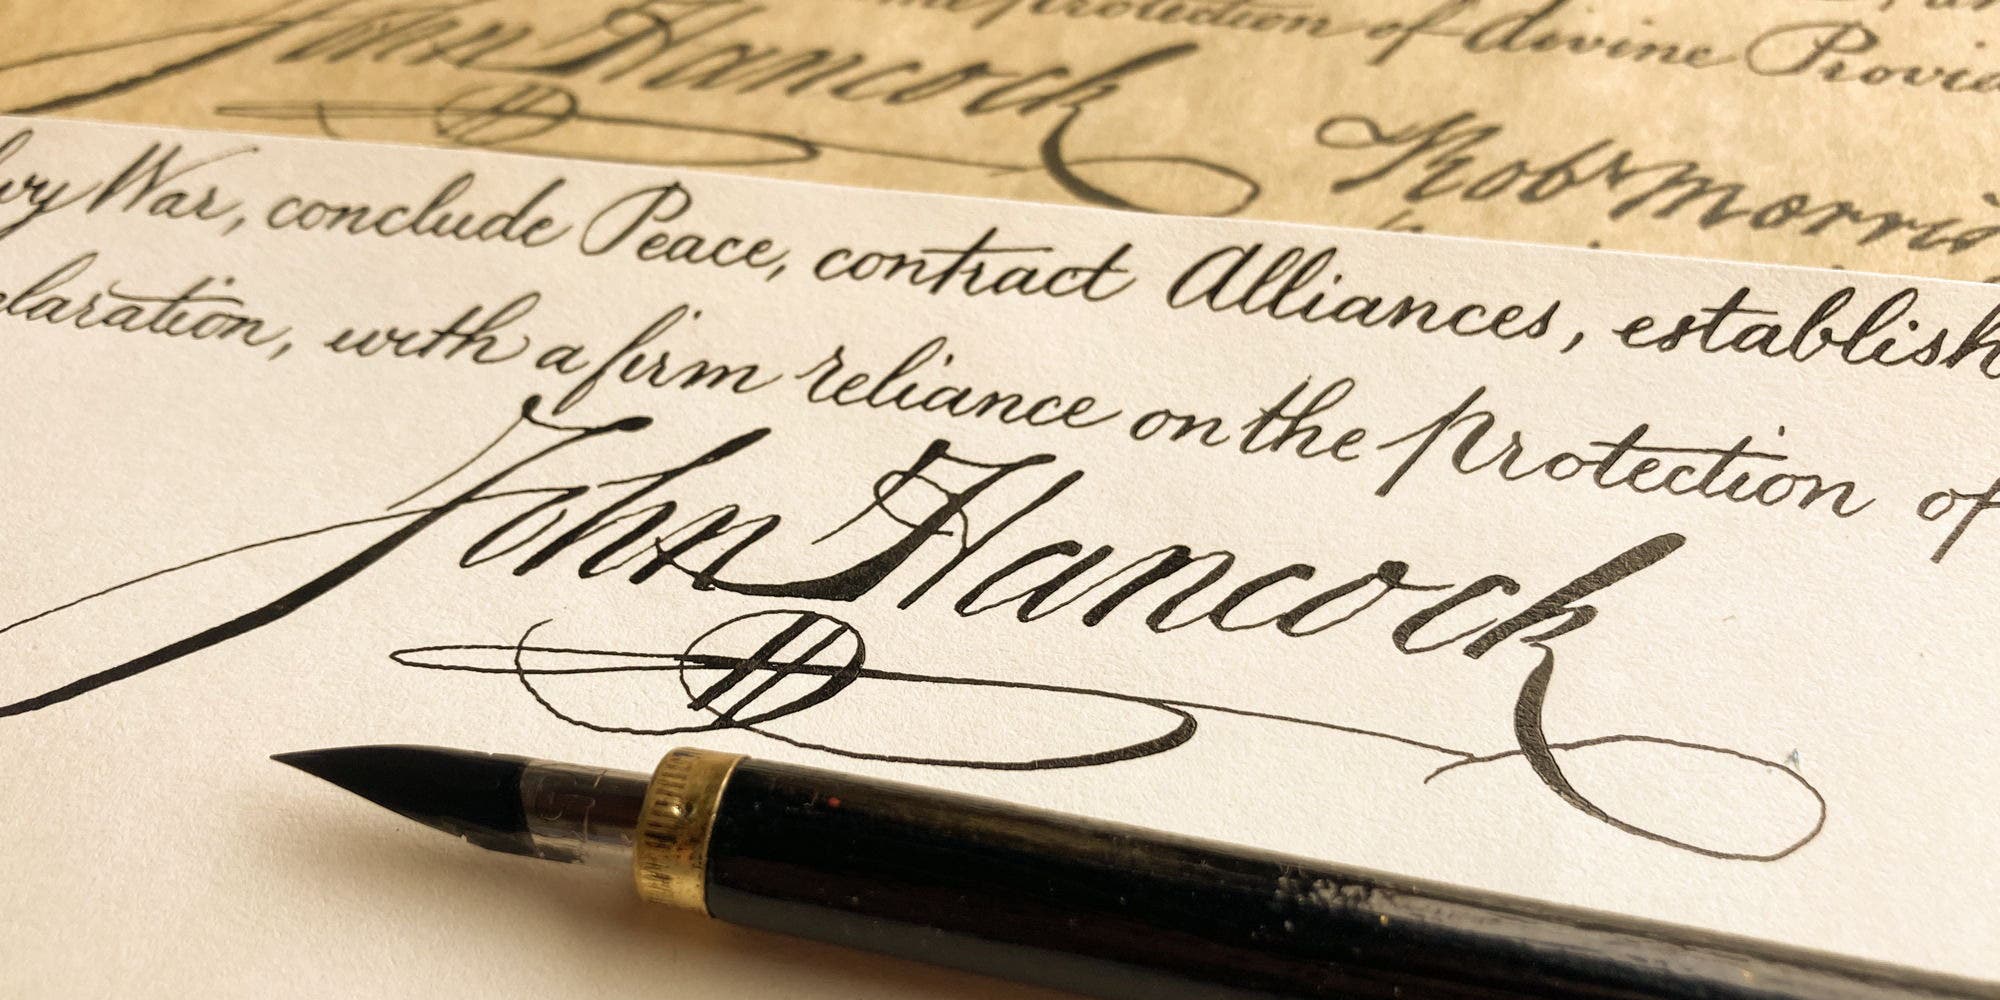 protection of divine
John Hancock
Robt Morris
War, conclude Peace, contract Alliances, establish
claration, with a firm reliance on the protection of
John Hancock